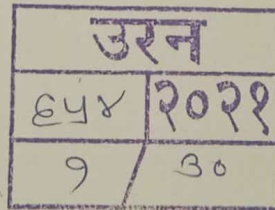 उरन
६५४ २०२१
१ / ३०